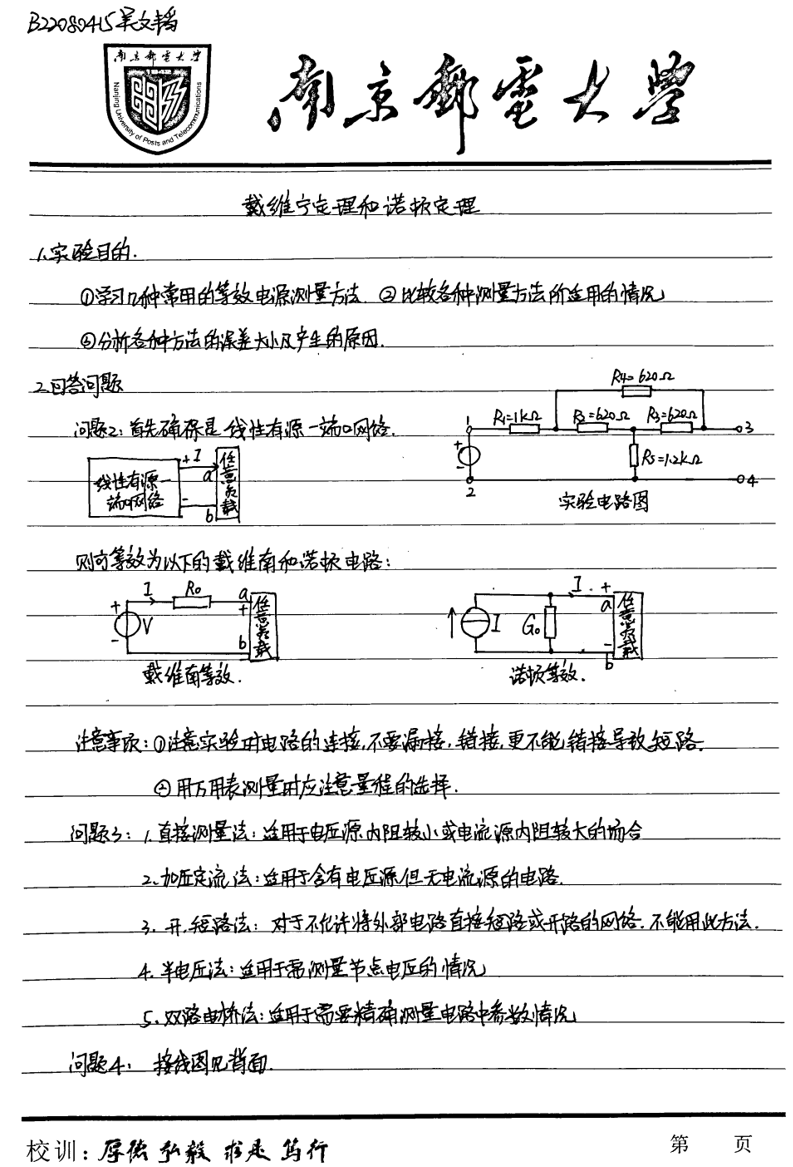 B22080415吴文韬
南京邮电大学
Nanjing University of Posts and Telecommunications
南京郵電大學
戴维宁定理和诺顿定理
1.实验目的.
①学习几种常用的等效电源测量方法 ②比较各种测量方法所适用的情况
③分析各种方法的误差大小及产生的原因.
2.回答问题
R4=620Ω
问题2:首先确保是线性有源一端口网络.
1 R1=1kΩ R2=620Ω R3=620Ω 3
+ -
R5=1.2kΩ
2 4
实验电路图
线性有源一端口网络
+ I a
- b
任意负载
则可等效为以下的戴维南和诺顿电路:
I R0 a
+ V - + b
任意负载
戴维南等效.
I G0 I + a
- b
任意负载
诺顿等效.
注意事项:①注意实验时电路的连接,不要漏接,错接,更不能错接导致短路.
②用万用表测量时应注意量程的选择.
问题3:1.直接测量法:适用于电压源内阻较小或电流源内阻较大的场合
2.加压定流法:适用于含有电压源但无电流源的电路.
3.开.短路法:对于不允许将外部电路直接短路或开路的网络.不能用此方法.
4.半电压法:适用于需测量节点电压的情况
5.双路电桥法:适用于需要精确测量电路中参数情况
问题4: 接线图见背面.
校训:厚德 弘毅 求是 笃行
第 页